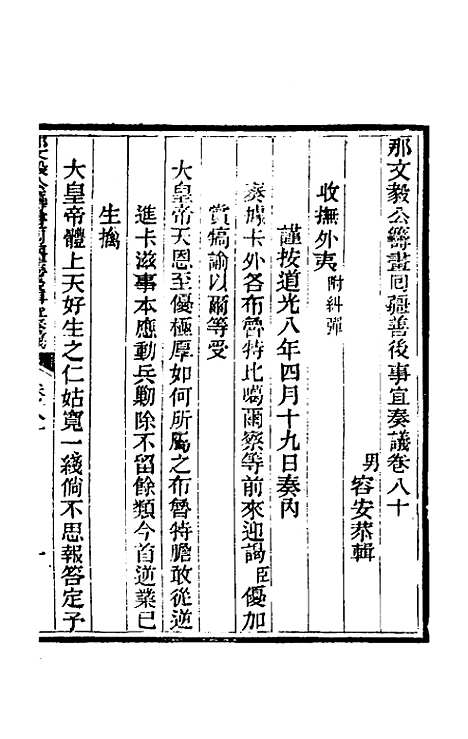 那文毅公籌畫囘疆善後事宜奏議卷八十
男 容安恭輯
收撫外夷 附糾彈
謹按道光八年四月十九日奏內
奏據卡外各布魯特比噶爾察等前來迎謁臣優加
賞犒諭以爾等受
大皇帝天恩至優極厚如何所屬之布魯特膽敢從逆
進卡滋事本應動兵勦除不留餘類今首逆業已
生擒
大皇帝體上天好生之仁姑寬一綫倘不思報答定予